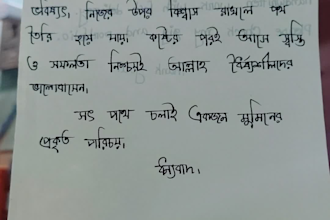 ভবিষ্যৎ, নিজের উপর বিশ্বাস রাখলে পথ
তৈরি হয়ে যায়, কষ্টের পরই আসে স্বস্তি
ও সফলতা নিশ্চয়ই আল্লাহ ধৈর্যশীলদের
ভালোবাসেন।
সৎ পথে চলাই একজন মুমিনের
প্রকৃত পরিচয়।
ধন্যবাদ।